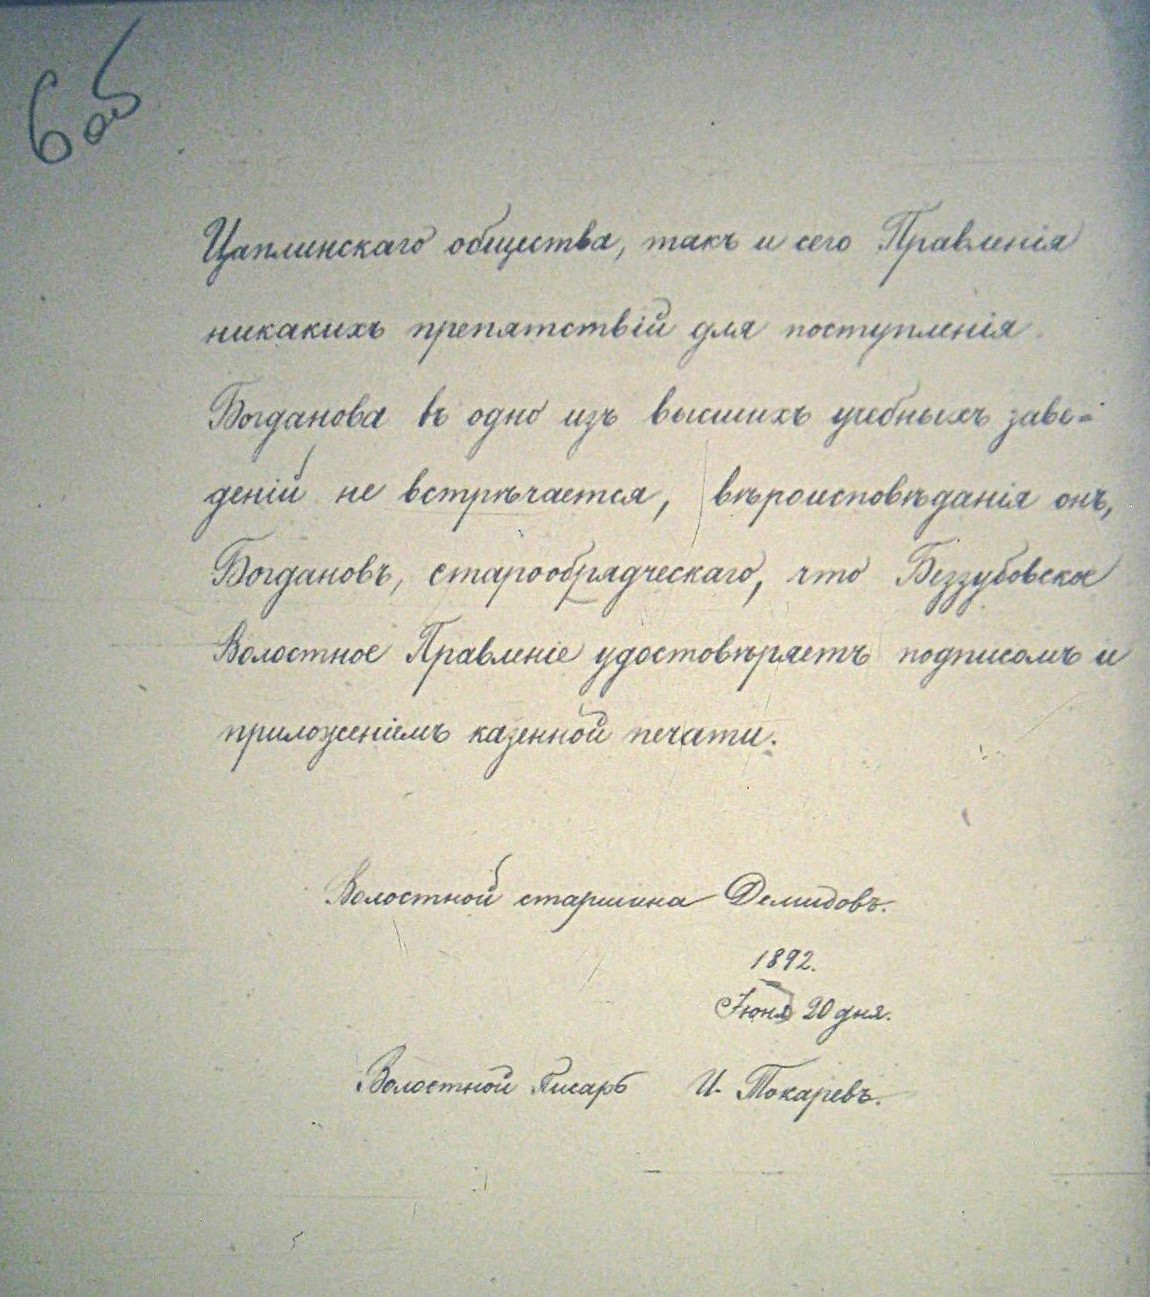 6 об
Цаплинскаго общества, такъ и сего Правленія
никакихъ препятствій для поступленія
Богданова въ одно изъ высшихъ учебныхъ заве-
деній не встрѣчается, вѣроисповѣданія онъ,
Богдановъ, старообрядческаго, что Беззубовское
Волостное Правленіе удостовѣряетъ подписомъ и
приложеніемъ казенной печати.
Волостной старшина Демидовъ.
1892.
Іюня 20 дня.
Волостной Писарь И. Токаревъ.